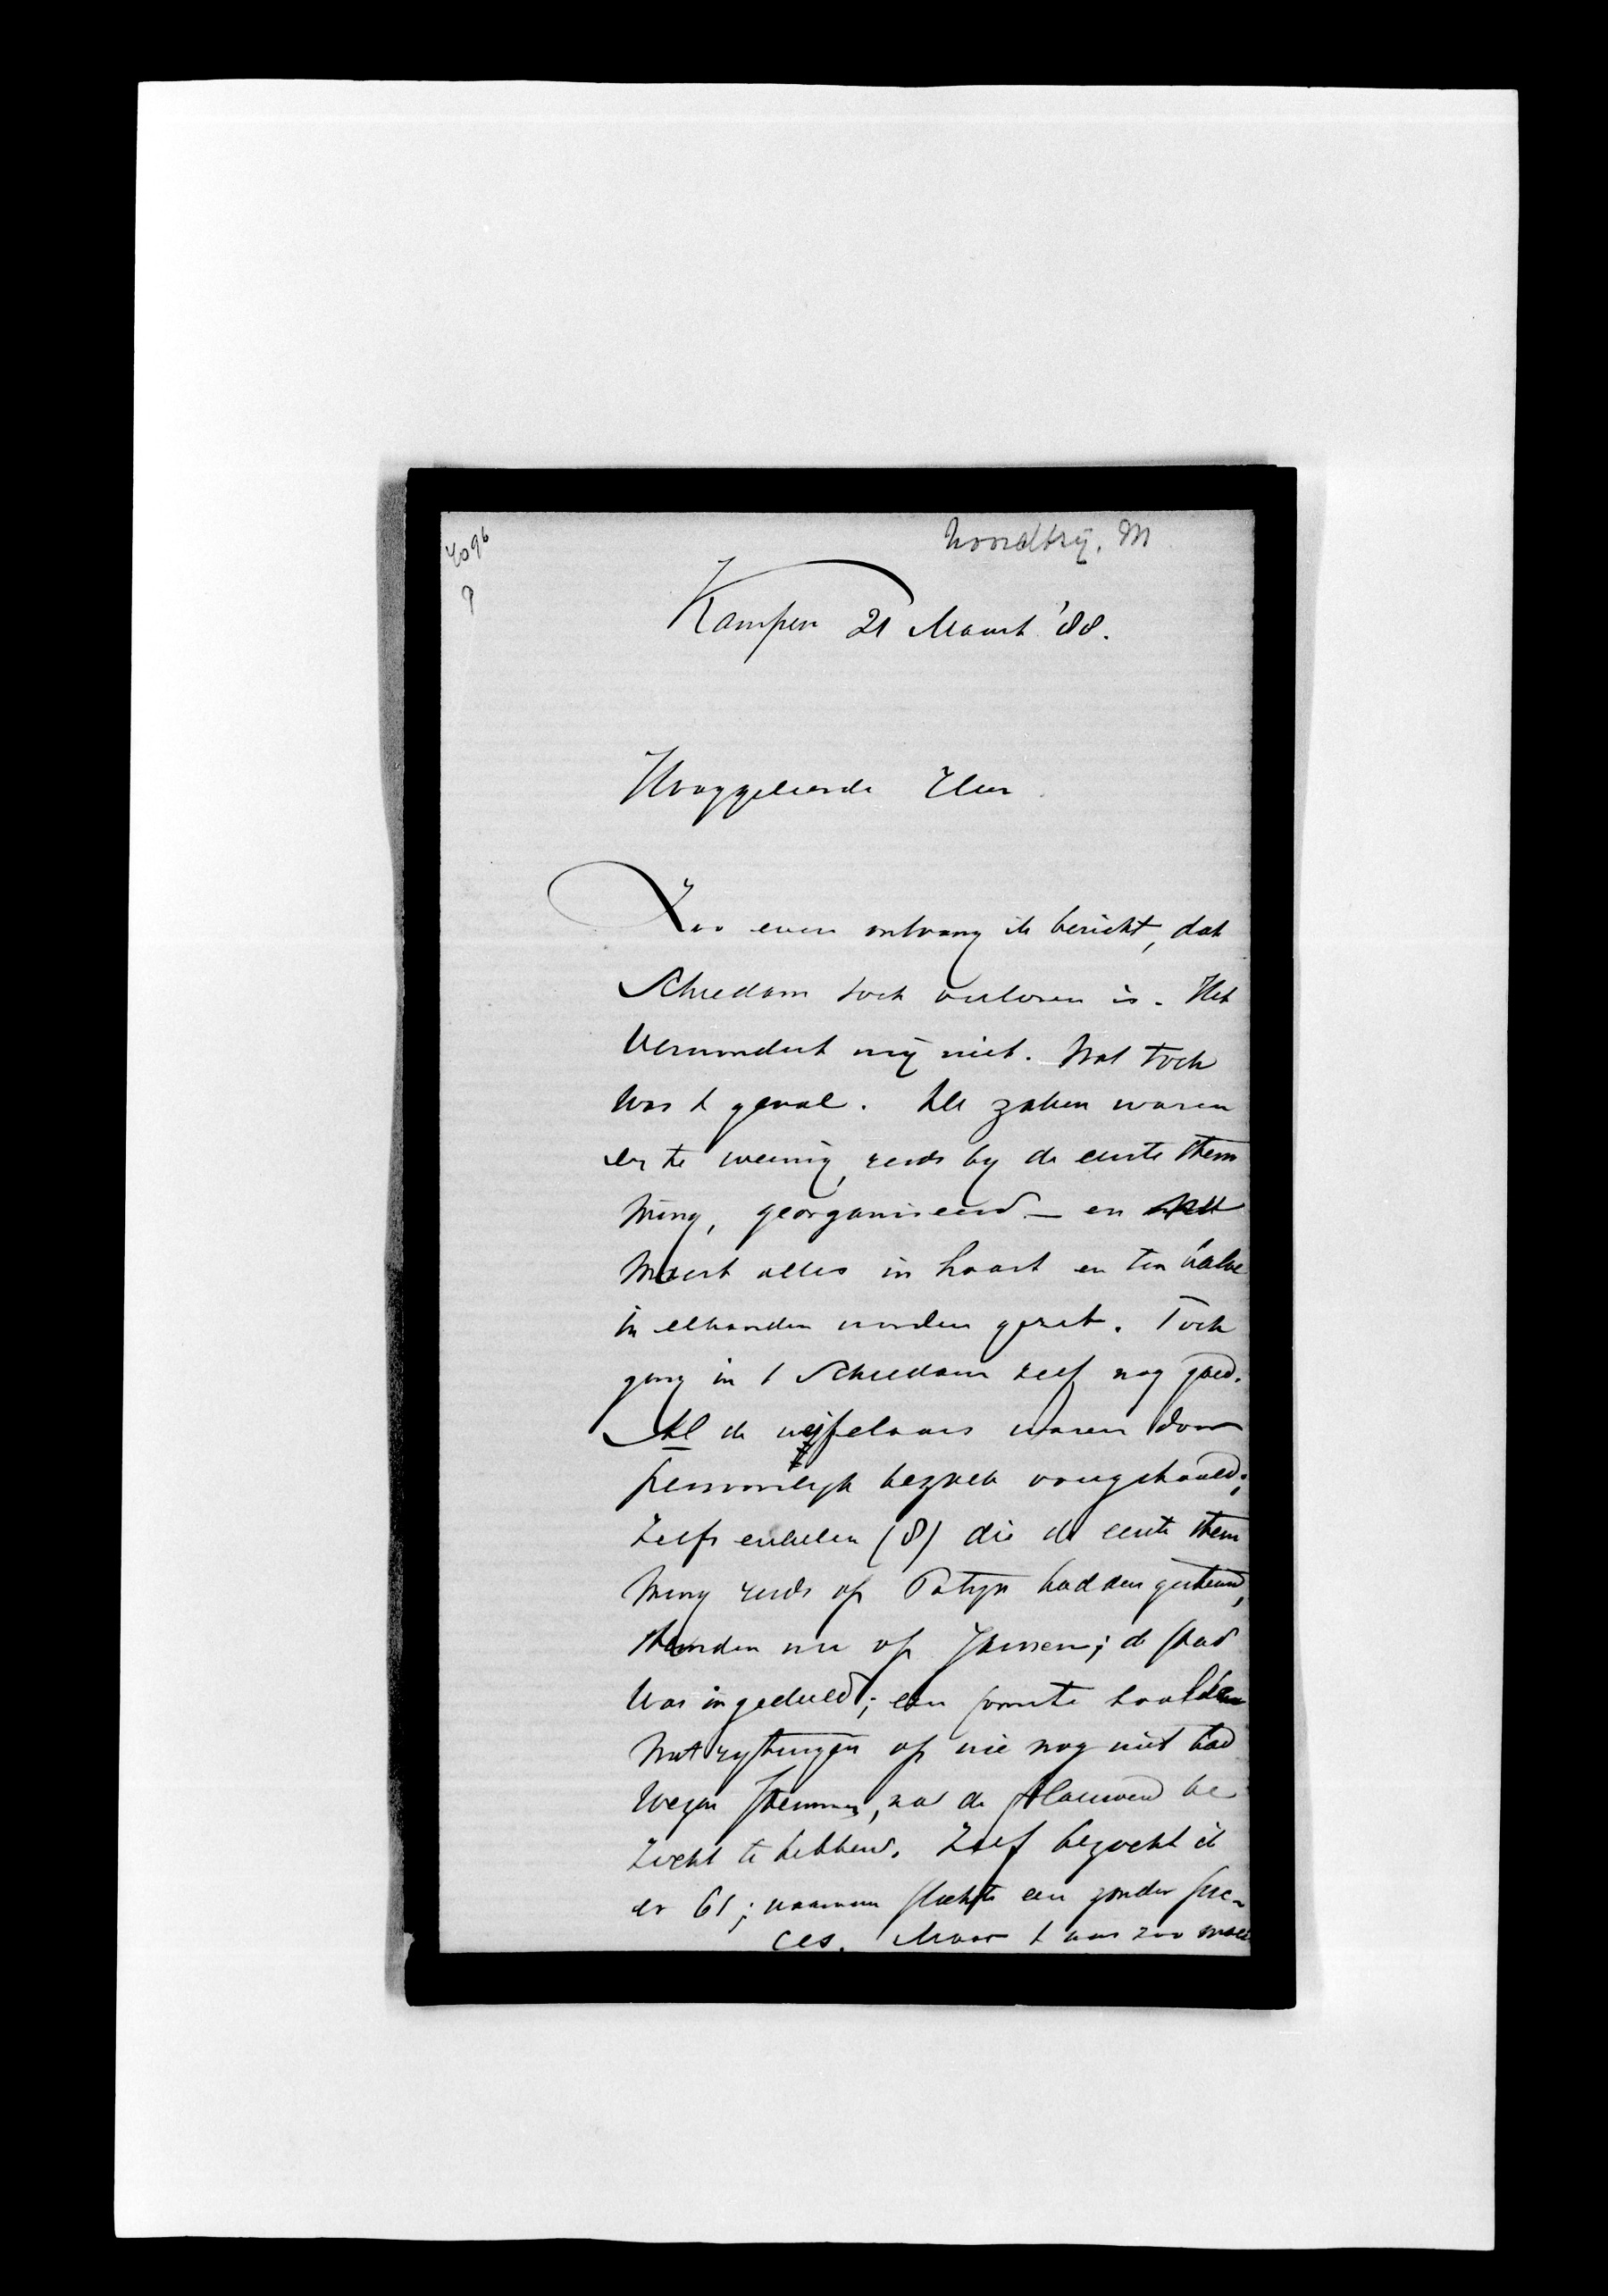 4096
9
Noordtzij. M
Kampen 21 Maart '88.
Hooggeleerde Heer
Zoo even ontvang ik bericht, dat
Schiedam toch verloren is. Het
verwondert mij niet. Wat toch
was t geval. De zaken waren
er te weinig, reeds by de eerste stem
ming, georganiseerd – en
moest alles in haast en ten halve
in elkander worden gezet. Toch
ging in t Schiedam zelf nog goed.
Al de weifelaars waren door
persoonlijk bezoek overgehaald;
Zelfs enkelen (8) die de eerste stem
ming reeds op Patijn hadden gestemd,
stemden nu op ; de stad
was ingedeeld; een
met rytuigen op wie nog niet had
be
zocht te hebben. Zelf bezocht ik
er 61; waarvan slechts een zonder suc-
ces. Maar t was zoo